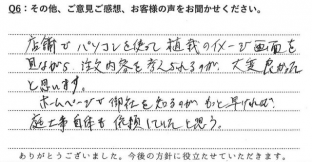 Q6:その他、ご意見ご感想、お客様の声をお聞かせください。
店舗でパソコンを使って植栽のイメージ画面を
見ながら、注文内容を考えられるのが、大変良かった
と思います。
ホームページで御社を知るのが、もっと早ければ、
庭工事自体も依頼していたと思う。
ありがとうございました。今後の方針に役立たせていただきます。